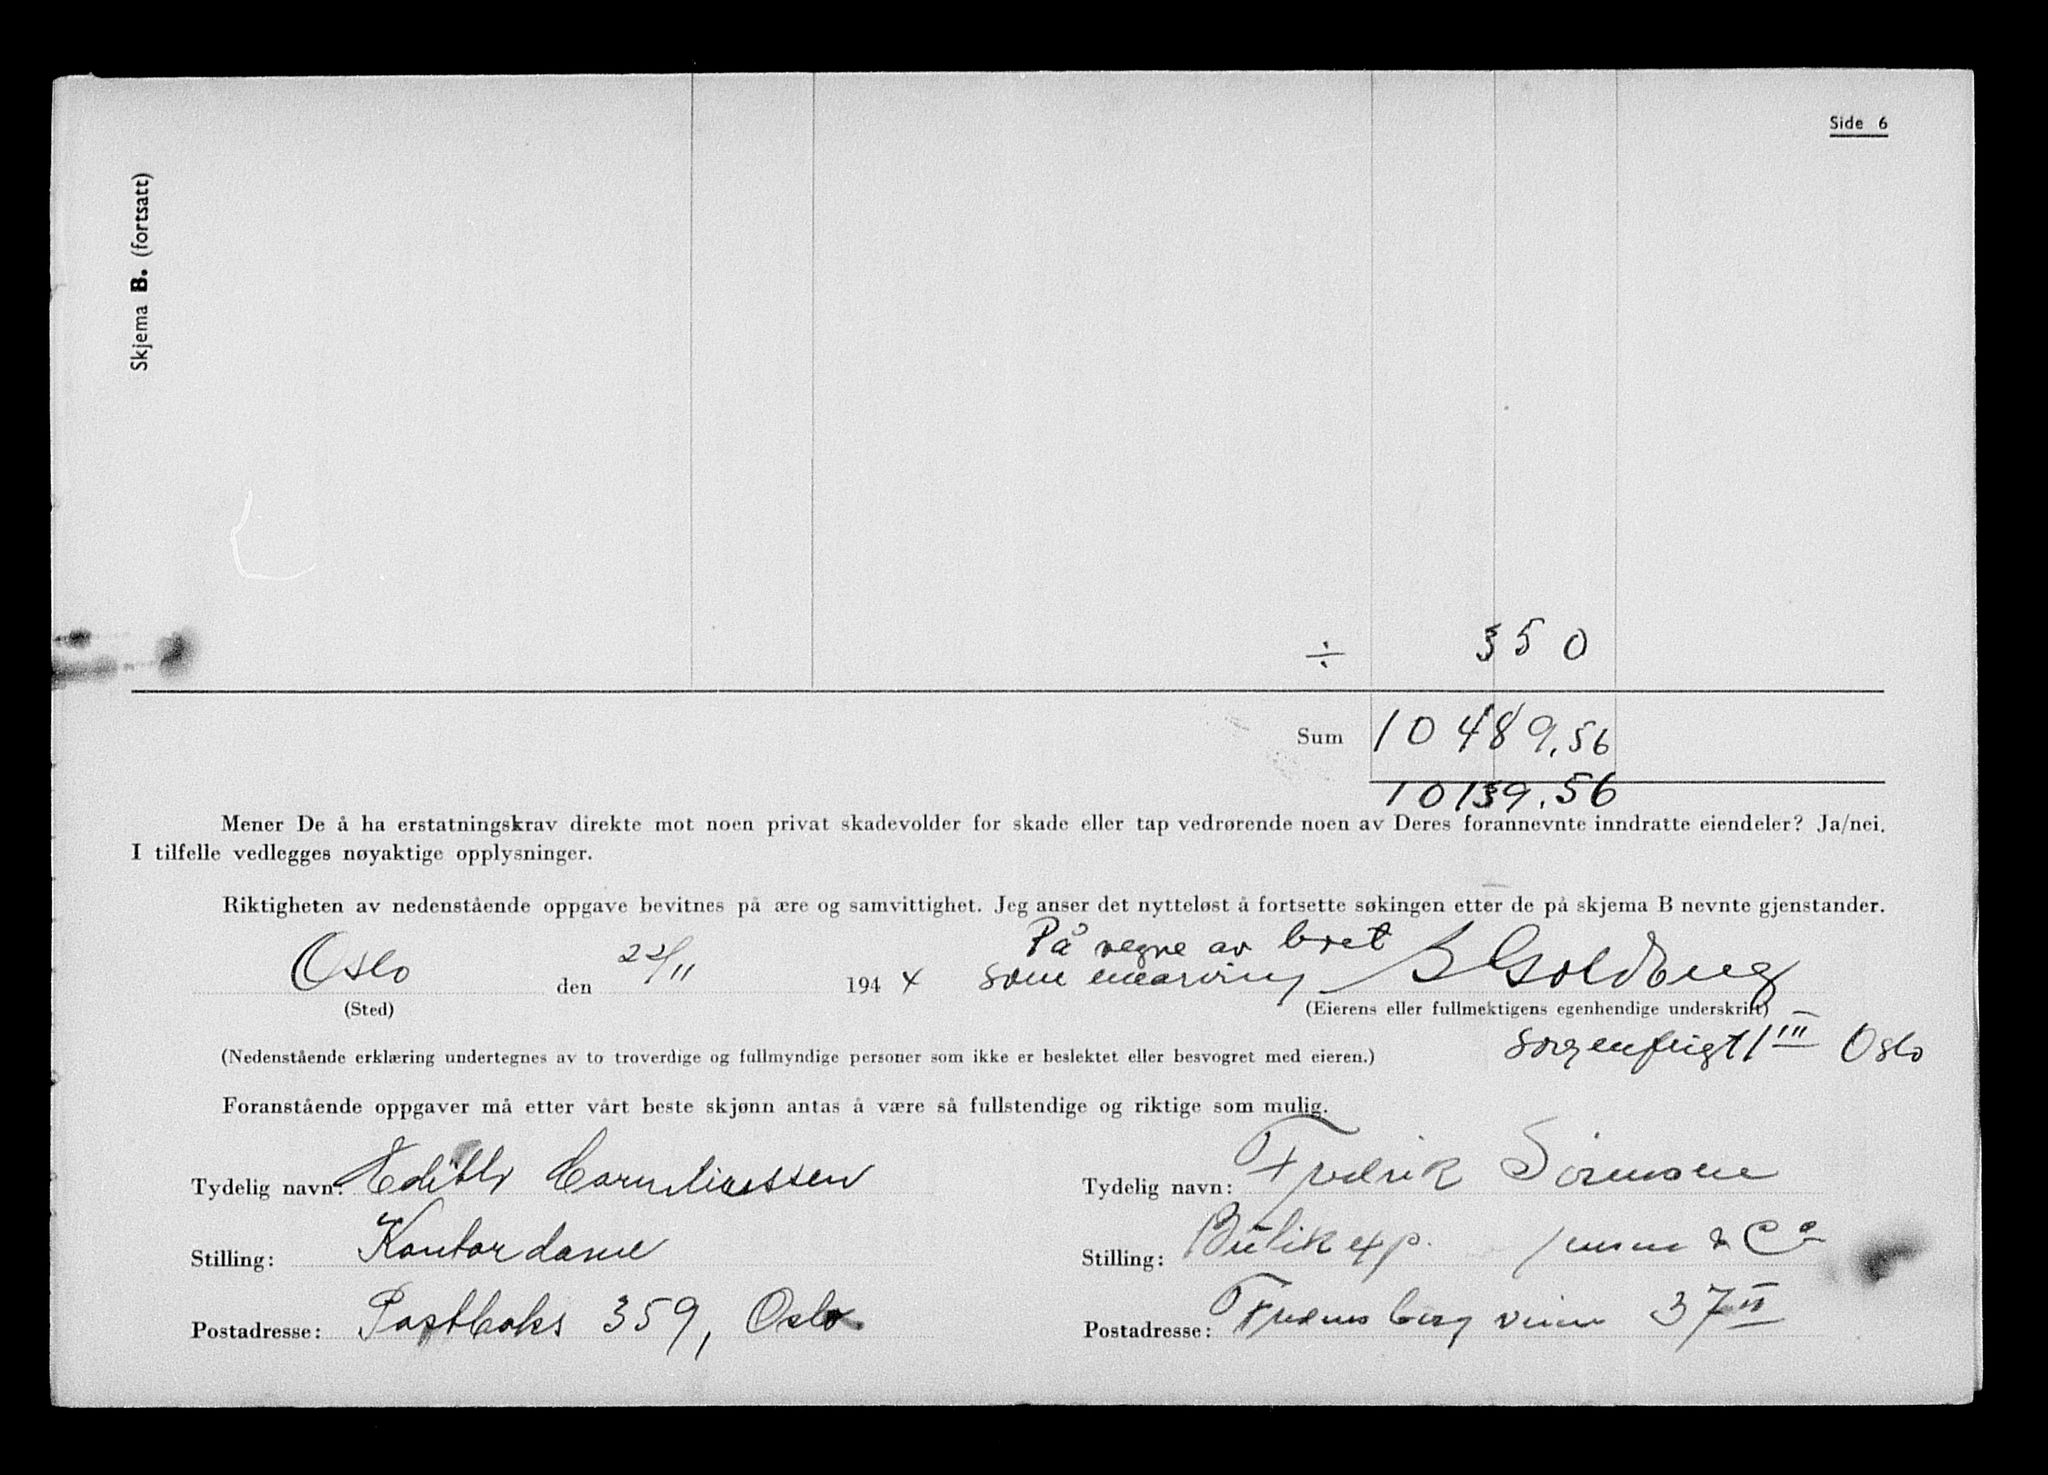 Side 6
Skjema B. (fortsatt)
÷ 350
Sum 10 489,56
10139.56
Mener De å ha erstatningskrav direkte mot noen privat skadevolder for skade eller tap vedrørende noen av Deres forannevnte inndratte eiendeler? Ja/nei.
I tilfelle vedlegges nøyaktige opplysninger.
Riktigheten av nedenstående oppgave bevitnes på ære og samvittighet. Jeg anser det nytteløst å fortsette søkingen etter de på skjema B nevnte gjenstander.
På vegne av boet
Oslo den 22/11 1944 som enearving B Goldberg
(Sted) (Eierens eller fullmektigens egenhendige underskrift)
Sorgenfrigt 1 III Oslo
(Nedenstående erklæring undertegnes av to troverdige og fullmyndige personer som ikke er beslektet eller besvogret med eieren.)
Foranstående oppgaver må etter vårt beste skjønn antas å være så fullstendige og riktige som mulig.
Tydelig navn: Edith Corneliussen Tydelig navn: Fredrik Sørensen
Stilling: Kontordame Stilling: Butikexp. & Co
Postadresse: Postboks 359, Oslo Postadresse: 37 II